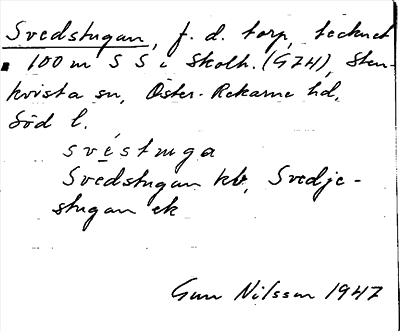 Svedstugan, f. d. torp, tecknat
100 m S S i Skolh. (GZH), Sten-
kvista sn, Öster-Rekarne hd,
Söd l.
svéstuga
Svedstugan kb, Svedje-
stugan ek
Gun Nilsson 1947